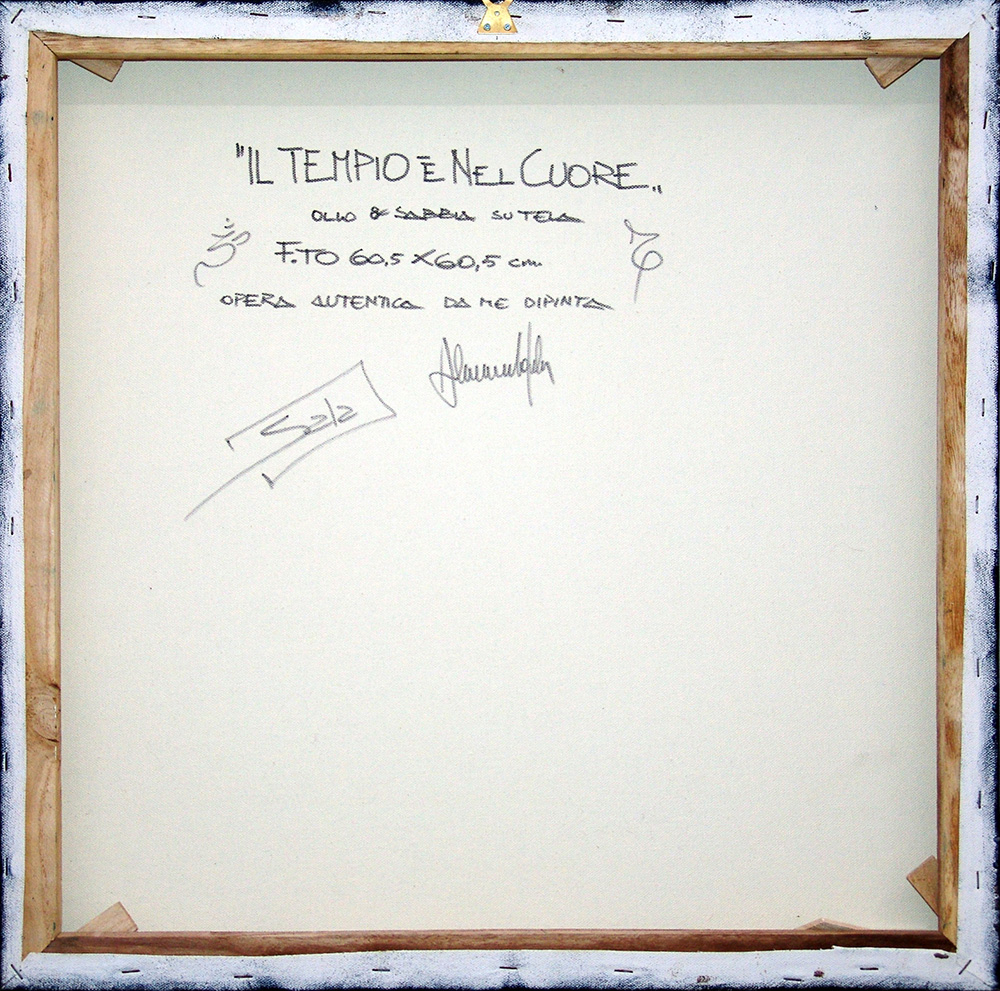 "IL TEMPIO È NEL CUORE„
OLIO & SABBIA SU TELA
F.TO 60,5 X 60,5 cm.
OPERA AUTENTICA DA ME DIPINTA
Sala